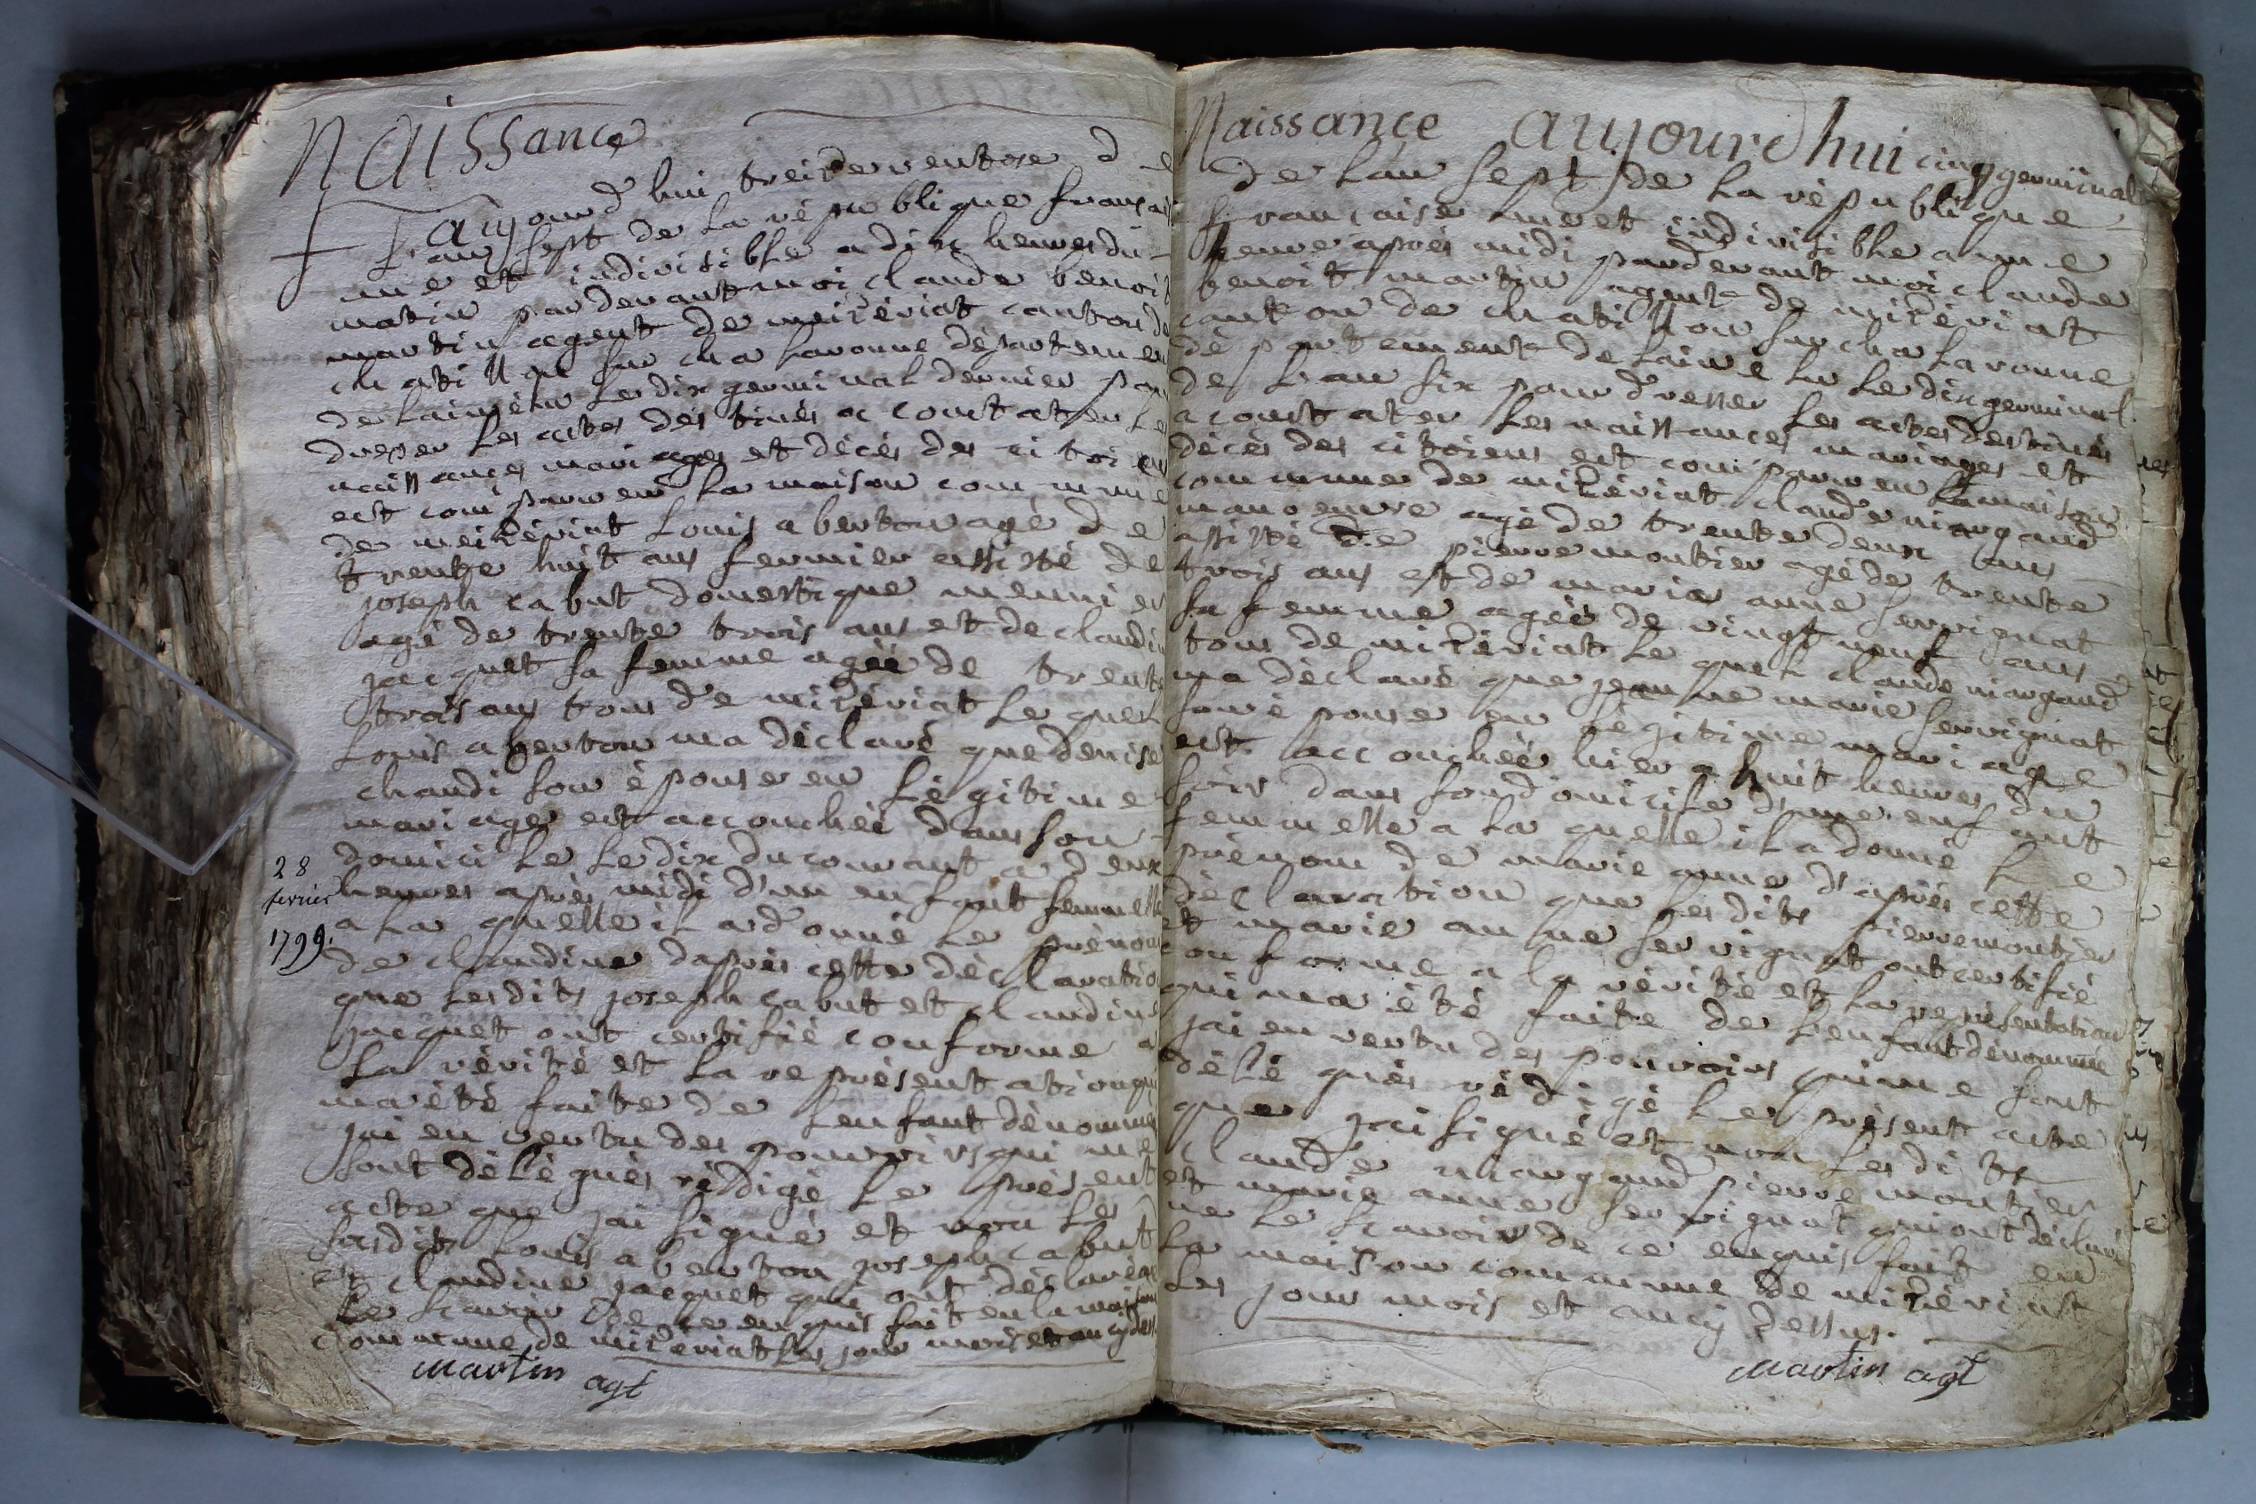 Naissance
aujourd'hui treize ventose de
L'an sept de la république français
une et indivisible a dix heures du
matin pardevant moi claude benoit
martin agent de mizériat canton de
chatillon sur chalaronne département
de lain élu le dix germinal dernier pour
dresser les actes destinés a constater les
naissances mariages et décès des citoiens
est comparu en la maison commune
de mizériat Louis aberton agé de
trente huit ans fermier assisté de
joseph cabut domestique meunier
agé de trente trois ans et de claudine
jacquet sa femme agéé de trente
trois ans tous de mizériat le quel
Louis aberton ma déclaré que denise
chaudi son épouse en légitime
mariage est accouchéé dans son
domicile le dix du courant a deux
28
fevrier
1799.
heures après midi d'un enfant femmelle
a la quelle il a donné le prénom
de claudine dapres cette déclaration
que lesdits joseph cabut et claudine
jacquet ont certifié conforme a
la vérité et la représentation qui
ma été faite de l'enfant dénommé
jai en vertu des pouvoirs qui me
sont délégués rédigé le présent
acte que jai signé et non les
susdits Louis aberton joseph cabut
et claudine jacquet qui ont déclaré ne
le scavoir de ce enquis fait en la maison
commune de mizériat les jour mois et an cy dess.
martin agt
Naissance aujourdhui cinq germinal
de lan sept de la république
francaise une et indivisible a une
heure après midi pardevant moi claude
benoit martin agent de mizériat
canton de chatillon sur chalaronne
département de lain élu le dix germinal
de l'an six pour dresser les actes destinés
a constater les naissances mariages et
décès des citoiens est comparu en la maison
commune de mizériat claude niargaud
manoeuvre agé de trente deux ans
assisté de pierre montier agé de trente
trois ans et de marie anne servignat
sa femme agéé de vingt neuf ans
tous de mizériat le quel claude niargaud
ma déclaré que jeanne marie servignat
son épouse en légitime mariage
est accouchéé hier a huit heures du
soir dans son domicile d'une enfant
femmelle a la quelle il a donné le
prénom de marie anne d'après cette
déclaration que lesdits pierre montier
et marie anne servignat ont certifié
conforme a la vérité et la représentation
qui ma été faite de l'enfant dénommé
jai en vertu des pouvoirs qui me sont
délégués rédigé le présent acte
que jai signé et non lesdits
claude niargaud pierre montier
et marie anne servignat qui ont déclaré
ne le scavoir de ce enquis fait en
la maison commune de mizériat
les jour mois et an cy dessus.
martin agt